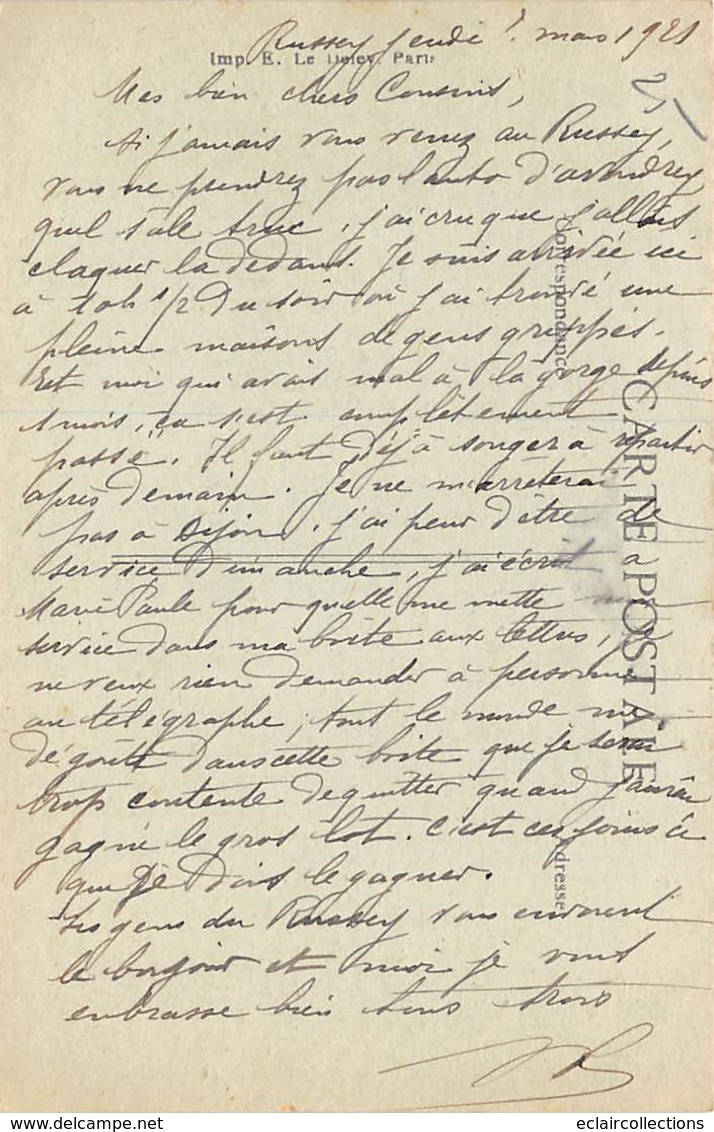 Russey Jeudi ? mars 1921
Imp. E. Le Deley. Paris
25
Mes bien chers Cousins,
Si jamais vous venez au Russey,
vous ne prendrez pas l'auto d'avoudrey
quel sale truc, j'ai cru que j'allais
claquer la dedans. Je suis arrivée ici
à 10h 1/2 du soir où j'ai trouvé une
pleine maisons de gens grippés.
Et moi qui avais mal à la gorge depuis
1 mois, ça s'est complètement
passé. Il faut déjà songer à repartir
après demain. Je ne m'arrêterai
pas à Dijon, j'ai peur d'être de
service dimanche, j'ai écrit à
Marie Paule pour quelle me mette mon
service dans ma boîte aux lettres, je
ne veux rien demander à personne
au télégraphe, tout le monde me
dégoûte dans cette boite que je serai
trop contente de quitter quand j'aurai
gagné le gros lot. C'est ces jours ci
que je dois le gagner.
Les gens du Russey vous envoient
le bonjour et moi je vous
embrasse bien tous trois
Correspondance
CARTE POSTALE
Adresse
eclaircollections